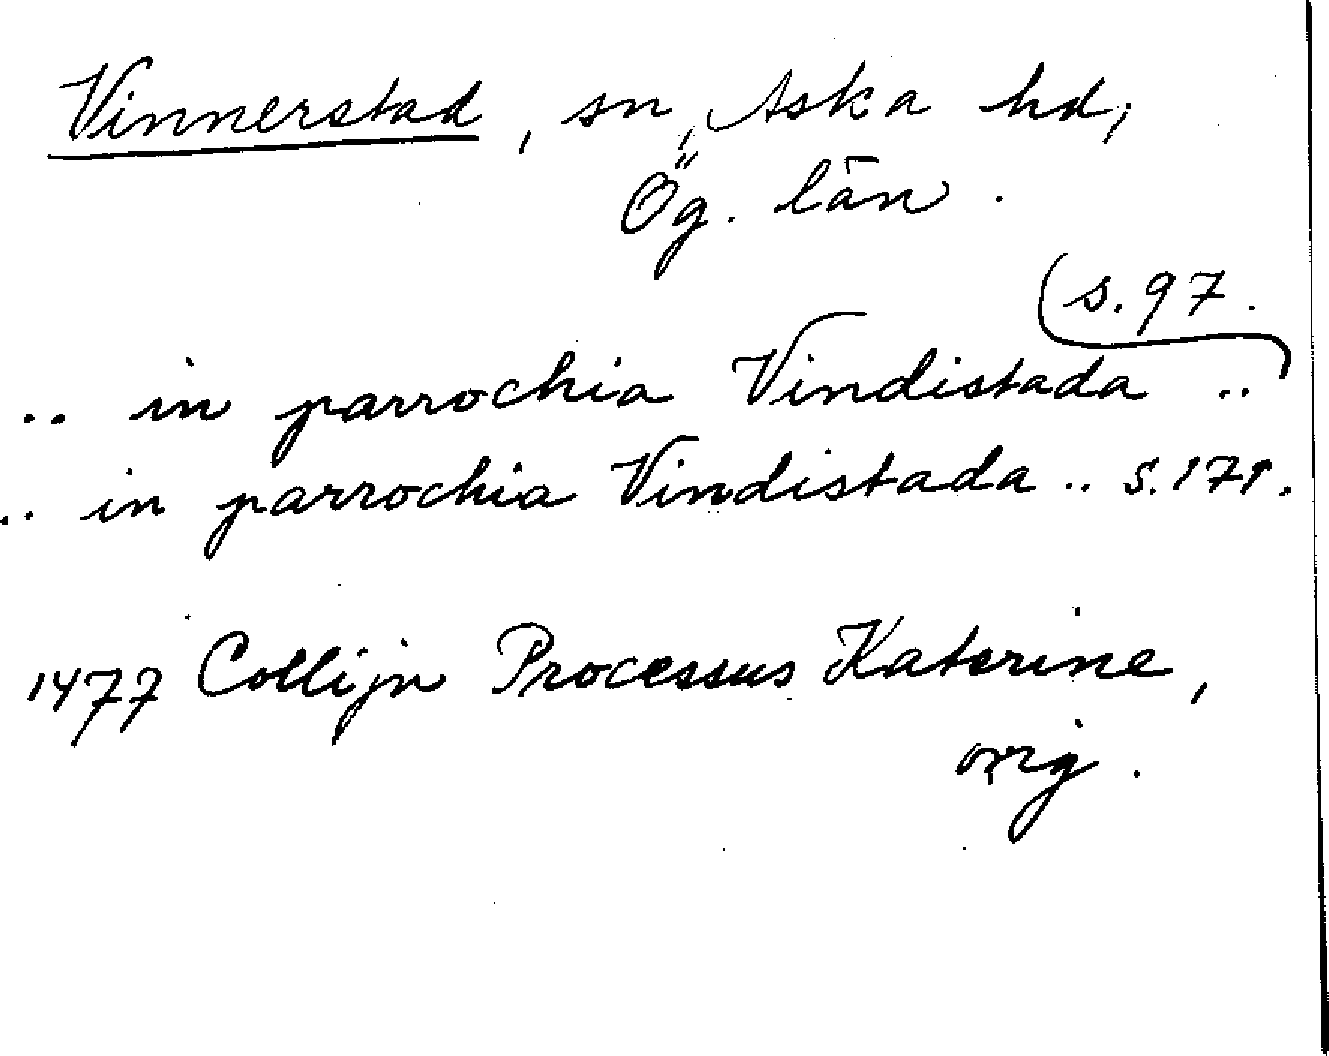 Vinnerstad, sn, Aska hd,
Ög. län.
s. 97.
.. in parrochia Vindistada ..
.. in parrochia Vindistada .. s. 171.
1477 Collijn Processus Katerine,
orig.